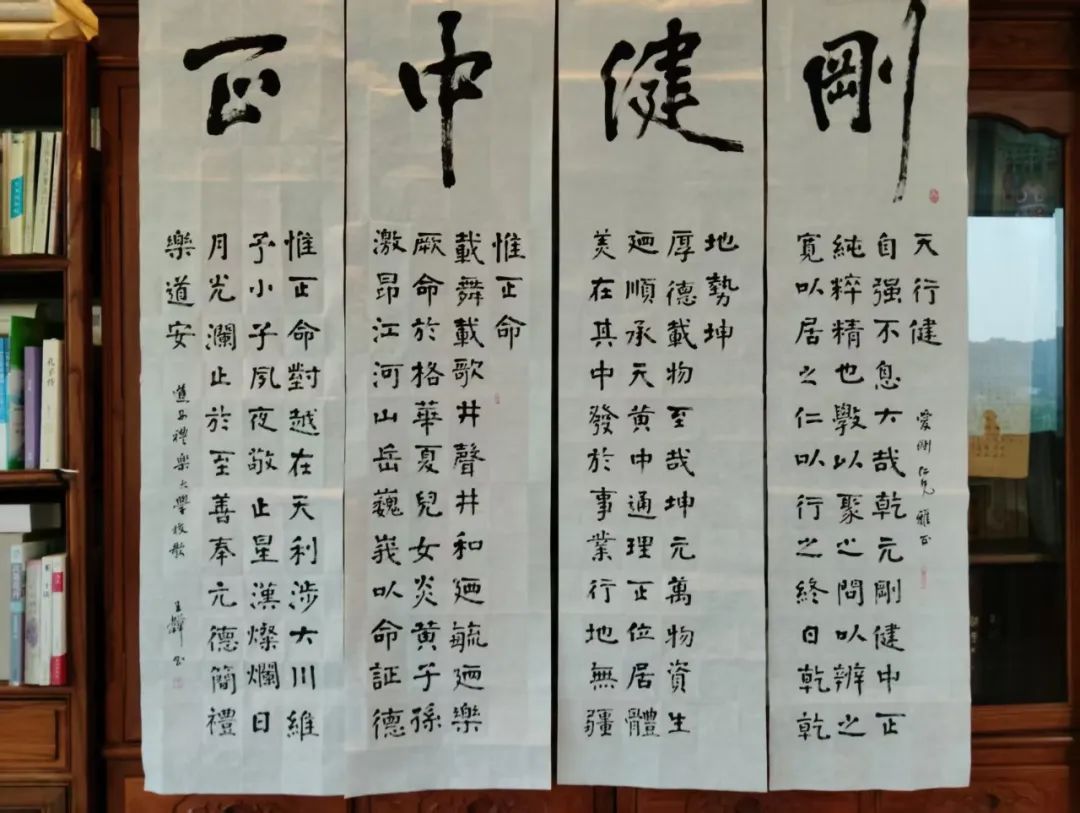 剛
天行健
自强不息大哉乾元剛健中正
純粹精也學以聚之問以辨之
寬以居之仁以行之終日乾乾
愛剛仁兄雅正
健
地勢坤
厚德載物至哉坤元萬物資生
廼順承天黄中通理正位居體
美在其中發於事業行地無疆
中
惟正命
載舞載歌井聲井和廼毓廼樂
厥命於格華夏兒女炎黄子孫
激昂江河山岳巍峩以命証德
正
惟正命對越在天利涉大川維
予小子夙夜敬止星漢燦爛日
月光瀾止於至善奉元德簡禮
樂道安
禮樂大學校歌
王 書